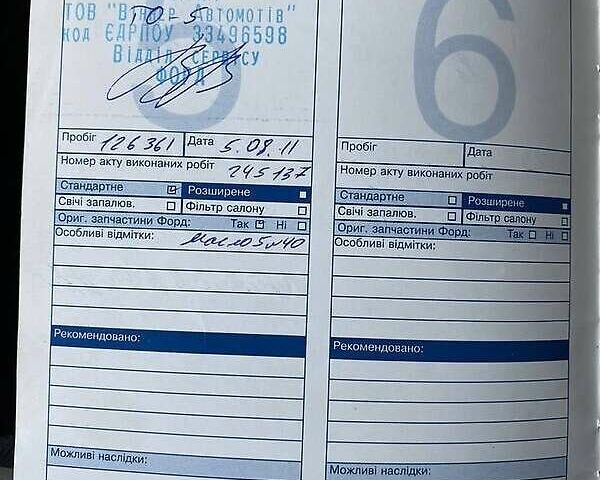 ТО-5
ТОВ "Віннер Автомотів"
код ЄДРПОУ 33496598
Відділ сервісу
ФОРД
5
Пробіг 126361 Дата 5.08.11
Номер акту виконаних робіт
245137
Стандартне Розширене
Свічі запалюв. Фільтр салону
Ориг. запчастини Форд: Так Ні
Особливі відмітки: масло 5w40
Рекомендовано:
Можливі наслідки:
6
Пробіг Дата
Номер акту виконаних робіт
Стандартне Розширене
Свічі запалюв. Фільтр салону
Ориг. запчастини Форд: Так Ні
Особливі відмітки:
Рекомендовано:
Можливі наслідки: